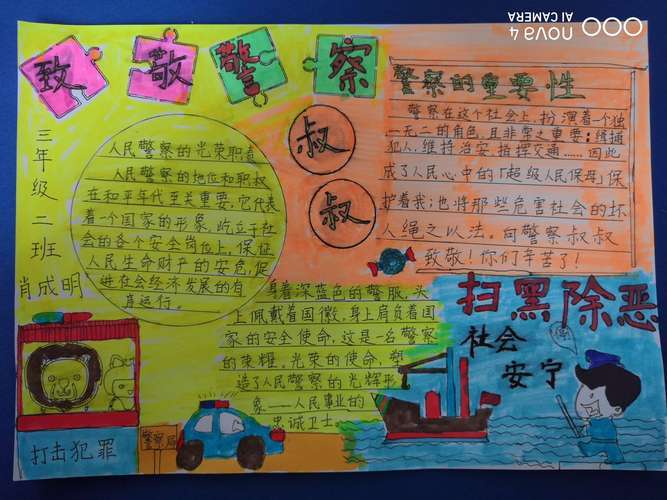 nova 4
AI CAMERA
致敬警察
叔叔
三年级二班
肖成明
人民警察的光荣职责
人民警察的地位和职权
在和平年代至关重要,它代表
着一个国家的形象,屹立于社
会的各个安全岗位上,保证
人民生命财产的安危,促
进在会经济发展的有
序运行。
警察的重要性
警察在这个社会上,扮演着一个独
一无二的角色,且非常之重要:缉捕
犯人,维持治安,指挥交通……因此
成了人民心中的「超级人民保母」保
护着我;也将那些危害社会的坏
人绳之以法。向警察叔叔
致敬!你们辛苦了!
身着深蓝色的警服,头
上佩戴着国徽,身上肩负着国
家的安全使命,这是一名警察
的荣耀,光荣的使命,塑
造了人民警察的光辉形
象——人民事业的
忠诚卫士。
扫黑除恶
社会
安宁
打击犯罪
警察局